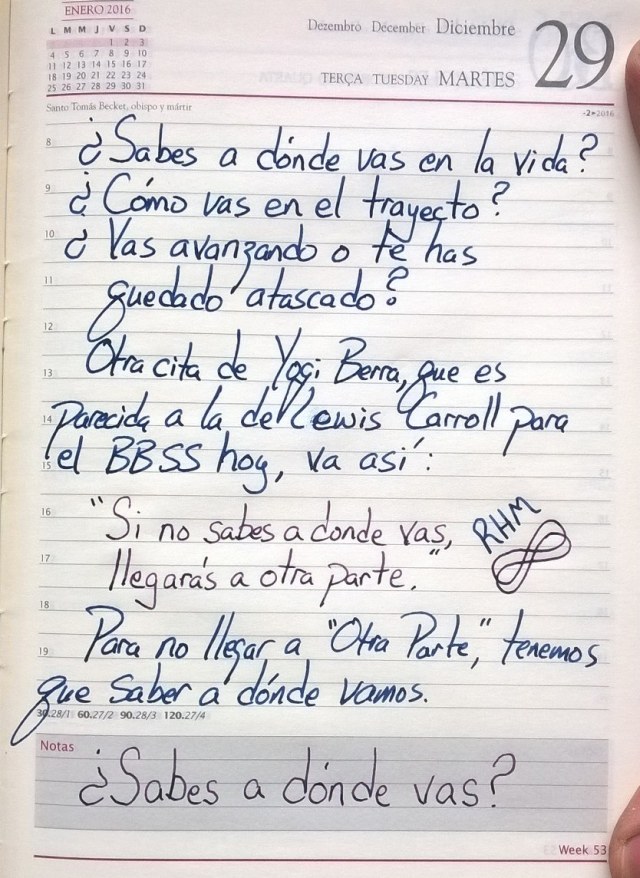 ENERO 2016
L M M J V S D
1 2 3
4 5 6 7 8 9 10
11 12 13 14 15 16 17
18 19 20 21 22 23 24
25 26 27 28 29 30 31
Dezembro December Diciembre
29
TERÇA TUESDAY MARTES
Santo Tomás Becket, obispo y mártir
-2•2016
8 ¿Sabes a dónde vas en la vida?
9 ¿Cómo vas en el trayecto?
10 ¿Vas avanzando o te has
11 quedado atascado?
12
13 Otra cita de Yogi Berra, que es
14 parecida a la de Lewis Carroll para
15 el BBSS hoy, va así:
16 "Si no sabes a donde vas,
17 llegarás a otra parte."
RHM
18
19 Para no llegar a "Otra Parte," tenemos
que saber a dónde vamos.
30.28/1 60.27/2 90.28/3 120.27/4
Notas
¿Sabes a dónde vas?
Week 53